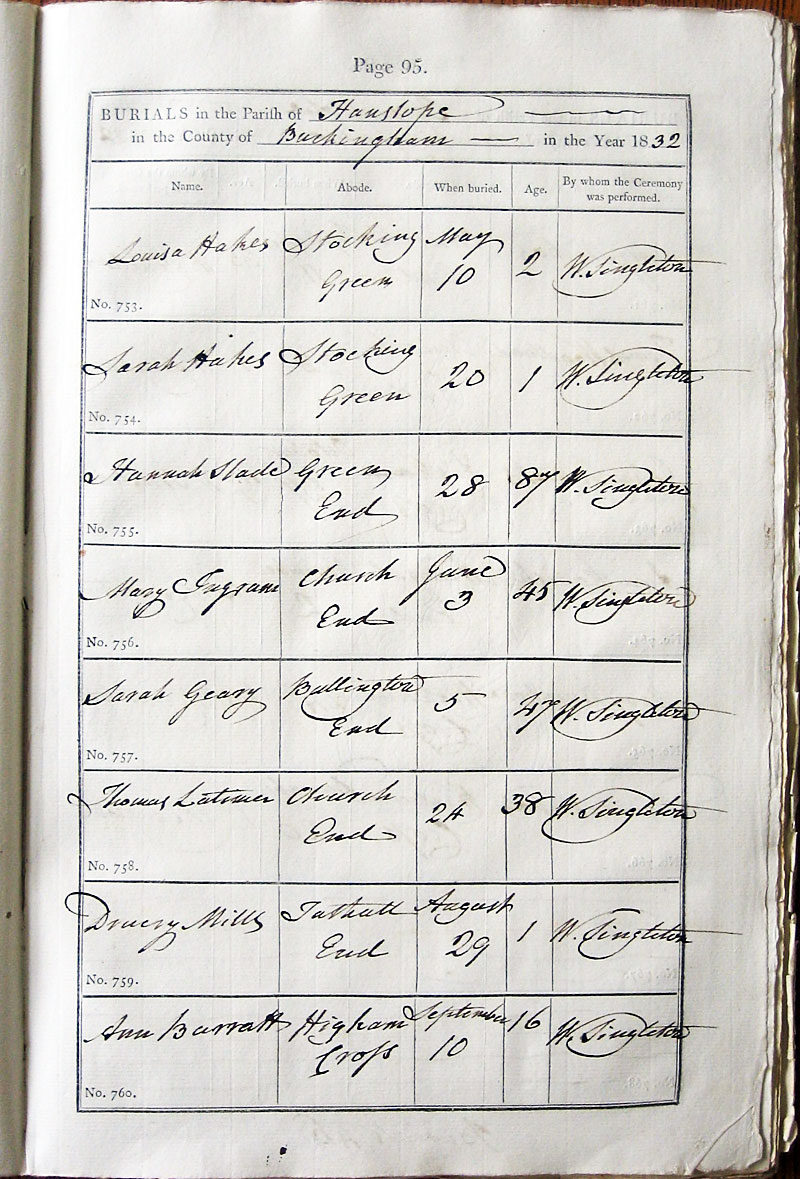 Page 95.
BURIALS in the Parish of Hanslope
in the County of Buckingham in the Year 1832
Name. Abode. When buried. Age. By whom the Ceremony was performed.
Louisa Hakes Stocking Green May 10 2 W. Singleton
No. 753.
Sarah Hakes Stocking Green 20 1 W. Singleton
No. 754.
Hannah Slade Green End 28 87 W. Singleton
No. 755.
Mary Ingram Church End June 3 45 W. Singleton
No. 756.
Sarah Geary Bullington End 5 47 W. Singleton
No. 757.
Thomas Latimer Church End 24 38 W. Singleton
No. 758.
Druery Mills Tathall End August 29 1 W. Singleton
No. 759.
Ann Barratt Higham Cross September 10 16 W. Singleton
No. 760.